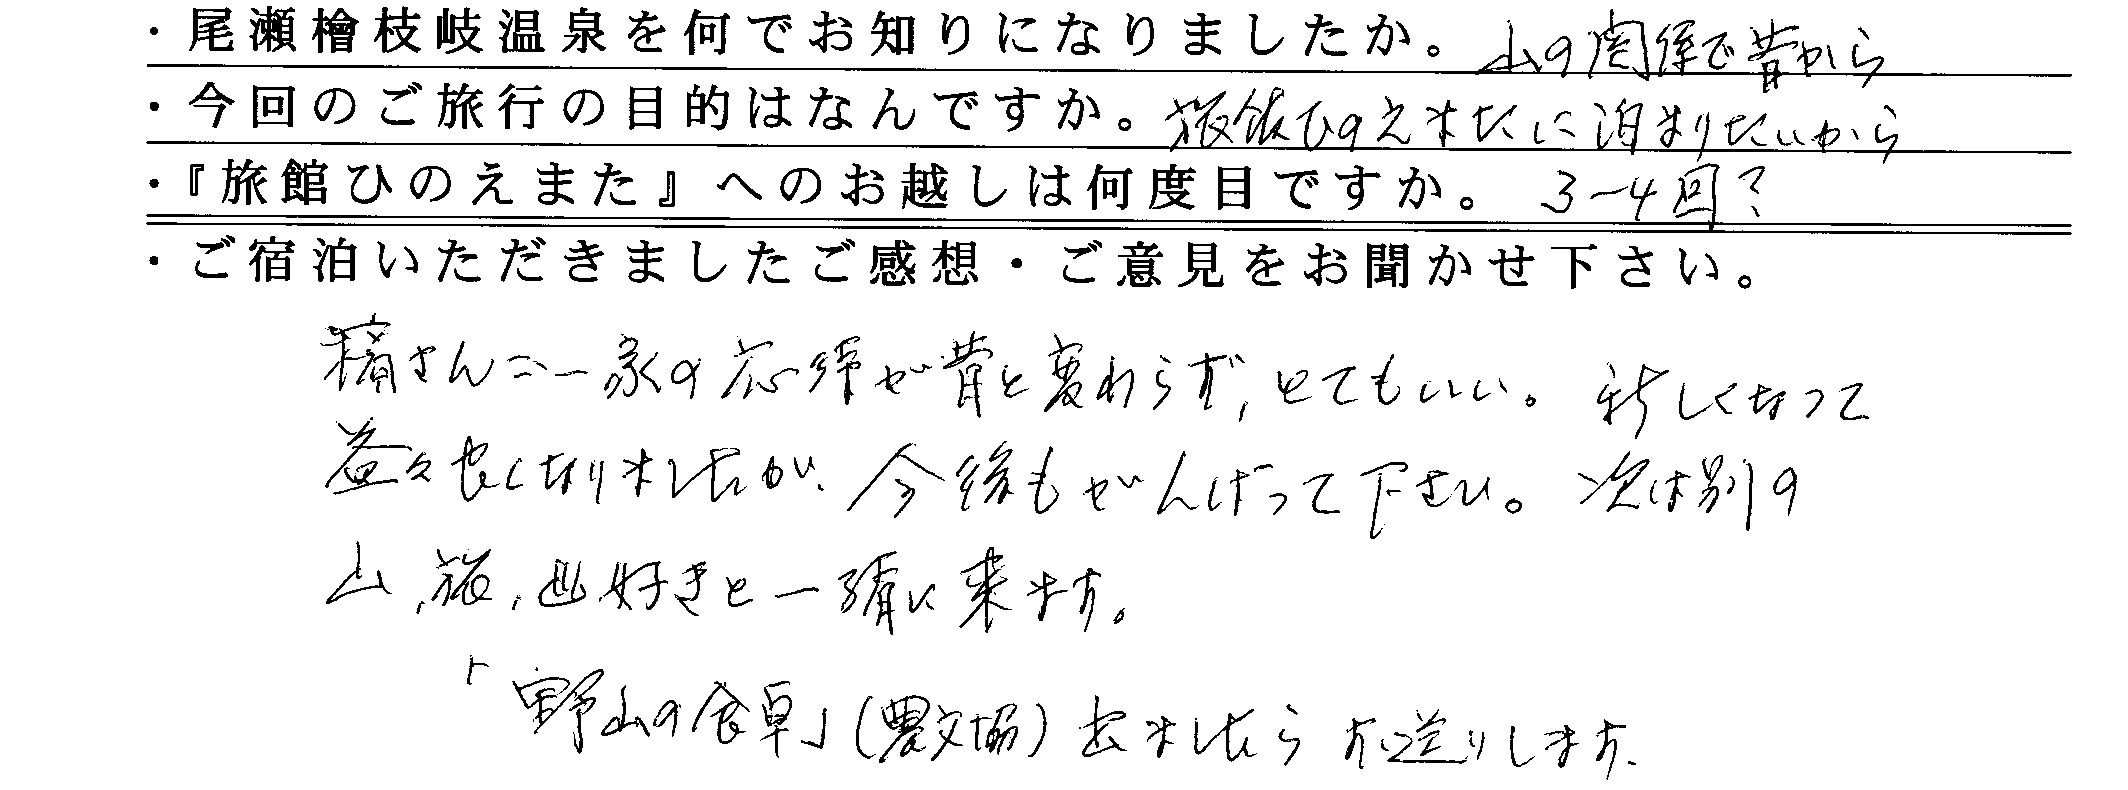 ・尾瀬檜枝岐温泉を何でお知りになりましたか。山の関係で昔から
・今回のご旅行の目的はなんですか。旅館ひのえまたに泊まりたいから
・『旅館ひのえまた』へのお越しは何度目ですか。3〜4回?
・ご宿泊いただきましたご感想・ご意見をお聞かせ下さい。
さんご一家の応待が昔と変わらず、とてもいい。新しくなって
益々良くなりましたが、今後もがんばって下さい。次は別の
山、旅、好きと一緒に来ます。
「野山の食卓」(農文協)出ましたらお送りします。